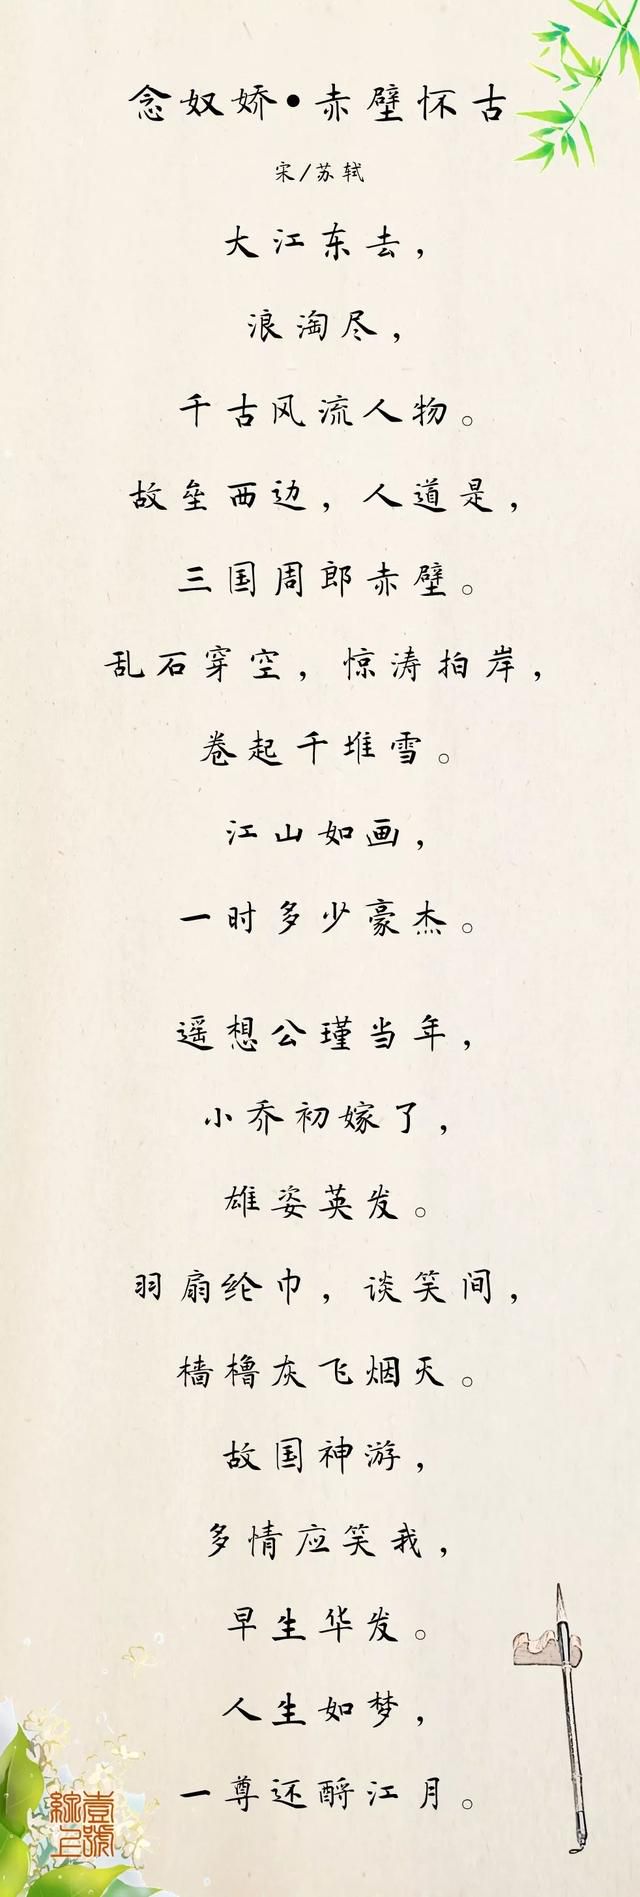 念奴娇•赤壁怀古
宋/苏轼
大江东去，
浪淘尽，
千古风流人物。
故垒西边，人道是，
三国周郎赤壁。
乱石穿空，惊涛拍岸，
卷起千堆雪。
江山如画，
一时多少豪杰。
遥想公瑾当年，
小乔初嫁了，
雄姿英发。
羽扇纶巾，谈笑间，
樯橹灰飞烟灭。
故国神游，
多情应笑我，
早生华发。
人生如梦，
一尊还酹江月。